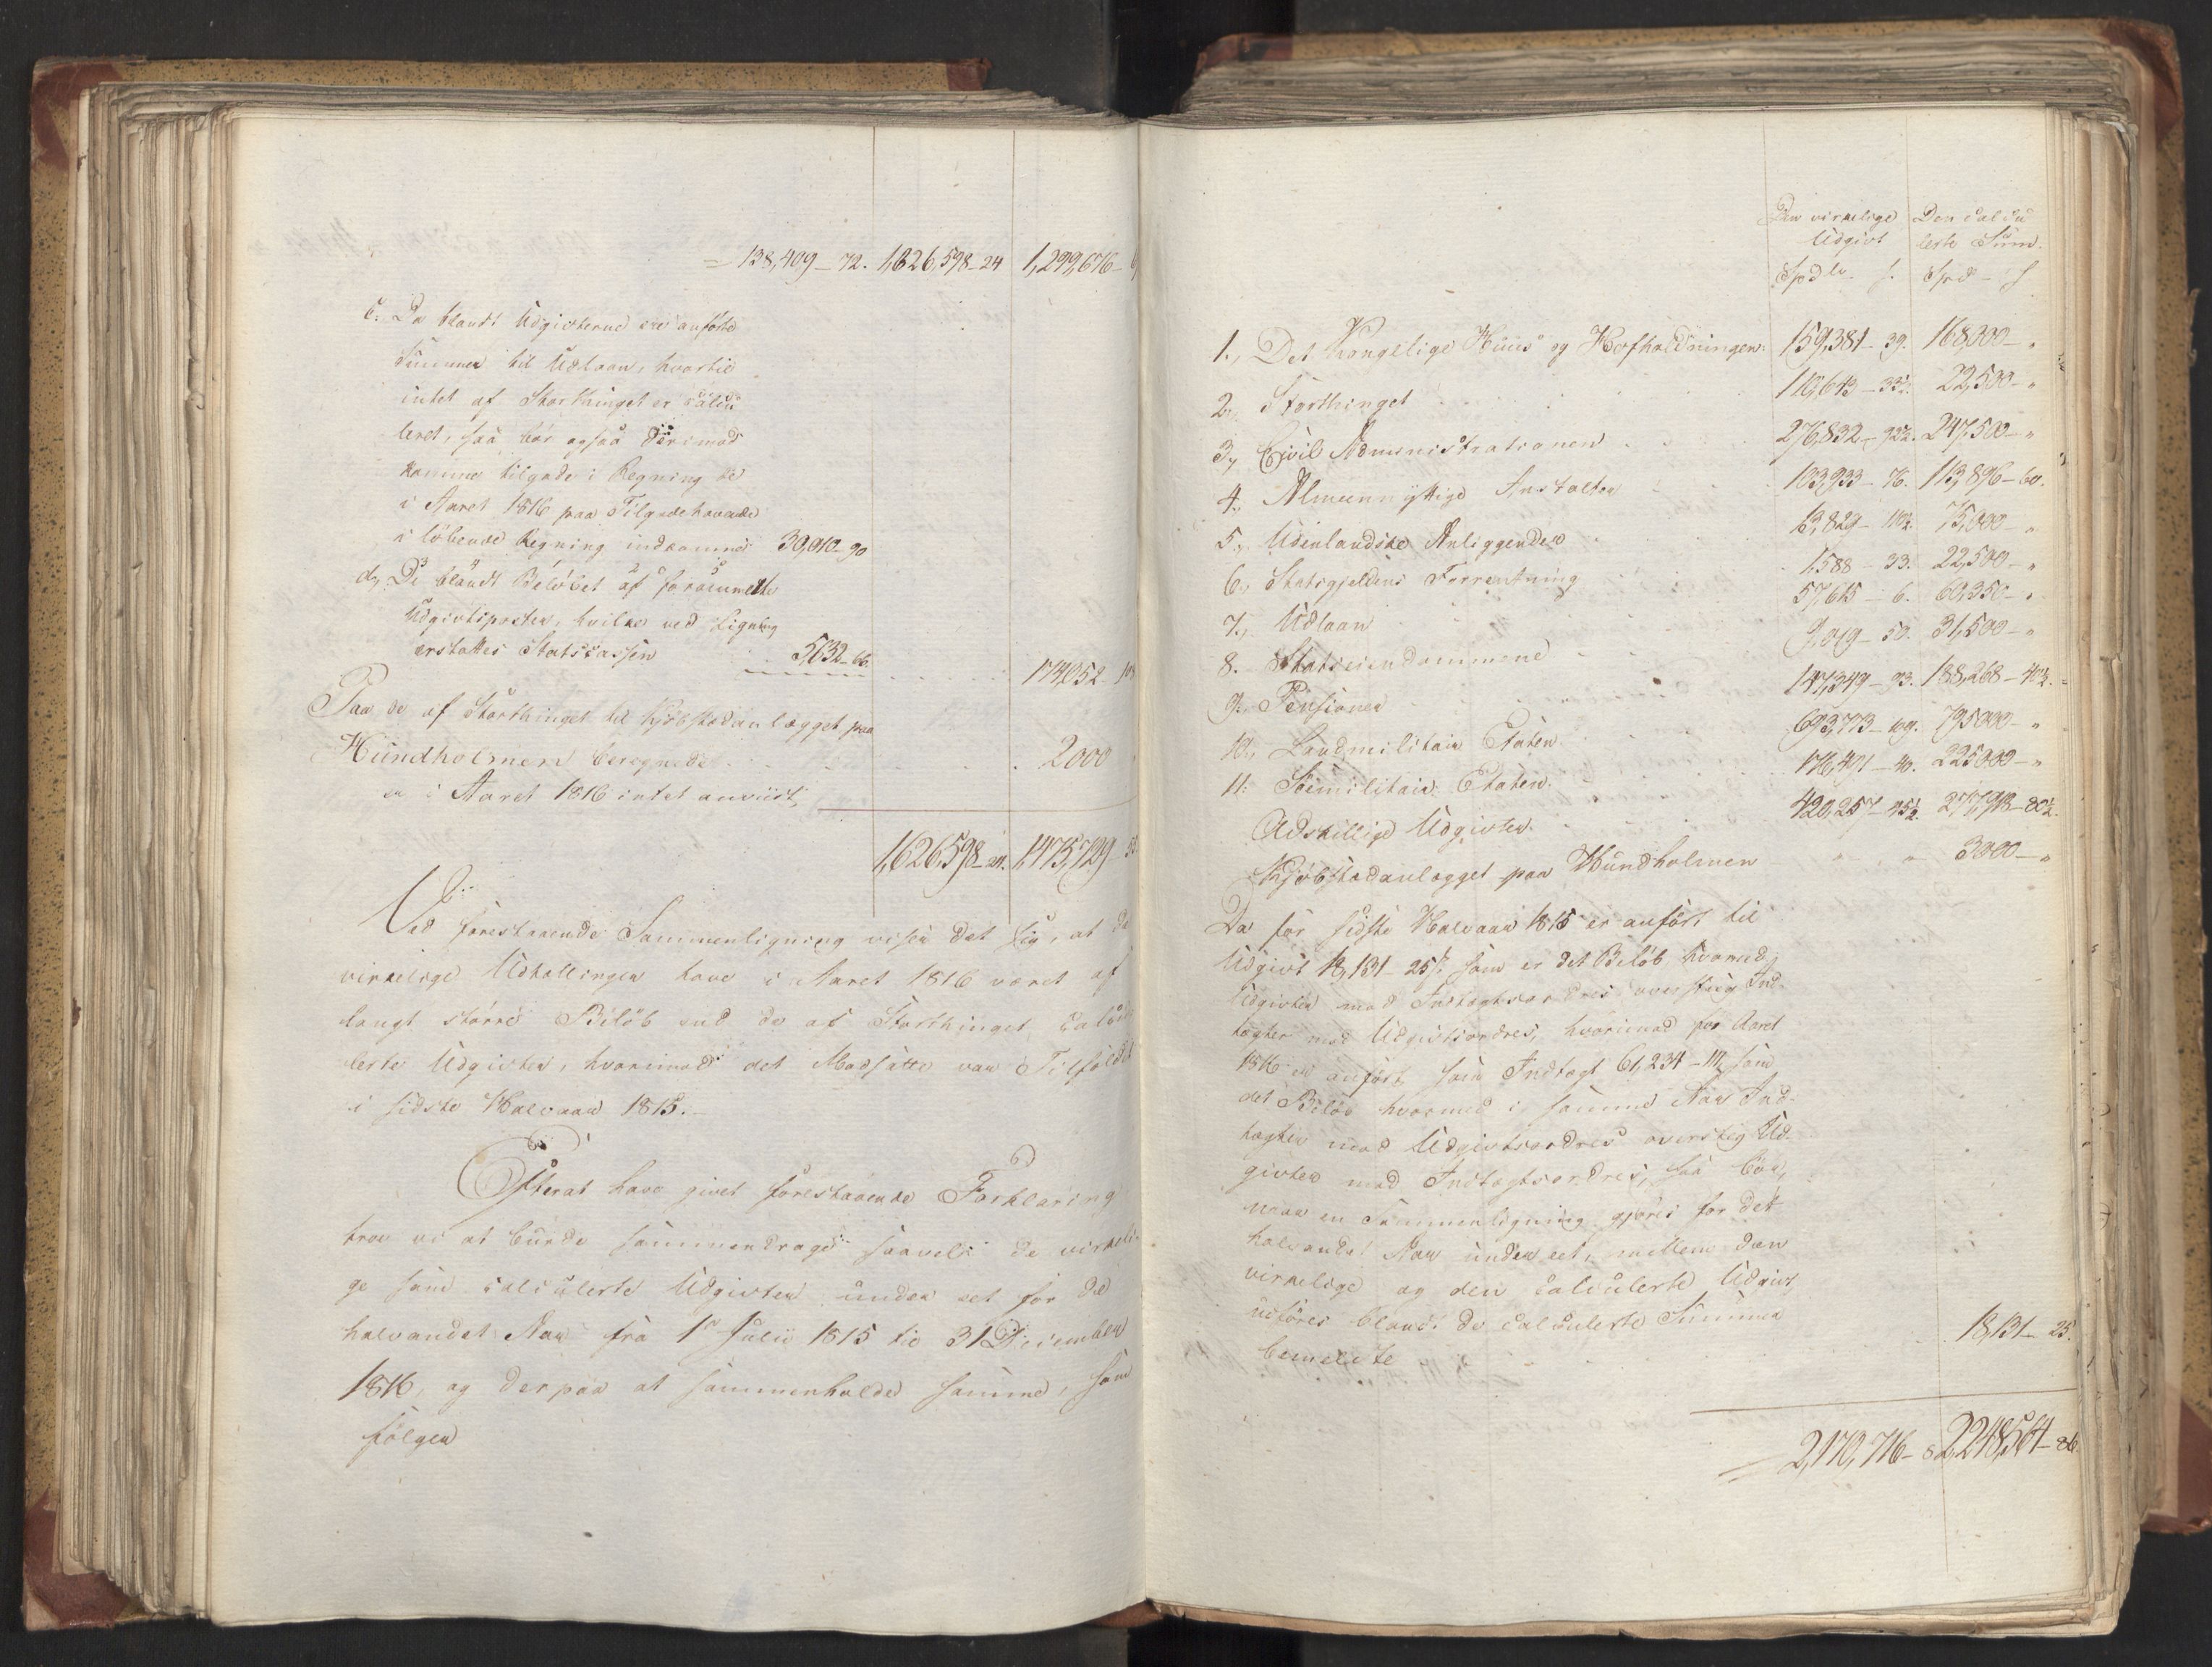 = 138,409 - 72. 1,626,598 - 24 1,299,676 -
c. Da blandt Udgifterne ere anførte
Summer til Udlaan, hvortil
intet af Storthinget er calcu
leret, saa bør ogsaa derimod
komme tilgode i Regning de
i Aaret 1816 paa Tilgodehavende
i løbende Regning indkomne 30,010 - 90
d, De blandt Beløbet af forommeldte
Udgiftsposter, hvilke ved Ligning
erstattes Statscassen 5,632 - 66.
174,052 -
Paa de af Storthinget til Kjøbstadanlægget paa
Hundholmen beregnede 2000
er i Aaret 1816 intet anviist,
1,626,598 - 24. 1,475,729
Ved forestaaende Sammenligning viser det sig, at de
virkelige Udtællinger have i Aaret 1816 været af
langt større Beløb end de af Storthinget calcu
lerte Udgifter, hvorimod det Modsatte var Tilfældet
i sidste Halvaar 1815.
Efterat have givet forestaaende Forklaring
troe vi at burde sammendrage saavel de virkeli-
ge som calculerte Udgifter under eet for det
halvandet Aar fra 1ste Julii 1815 til 31 December
1816, og derpaa at sammenholde samme, som
følger
Den virkelige Den calcu
Udgivt lerte Sum.
Spdlr. s. Spd - s
1., Det Kongelige Huus og Hofholdningen. 159,381 - 39. 168,000 - "
2., Storthinget 110,643 - 33½. 22,500 - "
3, Civil Administrationen 276,832 - 92½. 247,500 - "
4., Almeennyttige Anstalter 103,933 - 76. 113,896 - 60.
5., Udenlandske Anliggender 13,829 - 110½. 75,000 - "
6., Statsgjeldens Forrentning 1588 - 33. 22,500 - "
7., Udlaan 57,615 - 6. 60,350 - "
8. Statseiendommene 9,019 - 50. 31,500 - "
9. Pensioner 147,349 - 93. 188,268 - 40½.
10., Landmilitair Etaten 693,773 - 109. 795,000 - "
11. Søemilitair Etaten. 176,491 - 40. 225,000 - "
Adskillige Udgifter. 420,257 - 45½. 277,918 - 80½.
Kjøbstadanlægget paa Hundholmen " " 3000 - "
Da for sidste Halvaar 1815 er anført til
Udgivt 18,131 - 25 s. som er det Beløb, hvormed
Udgifter med Indtægtsordres oversteeg Ind-
tægter med Udgiftsordres, hvorimod for Aaret
1816 er anført som Indtægt 61,234 - 111, som
det Beløb hvormed i samme Aar Ind-
tægter med Udgiftsordres oversteg Ud-
gifter med Indtægtsordres, saa bør,
naar en Sammenligning gjøres for det
halvandet Aar under eet, mellem den
virkelige og den calculerte Udgivt,
udføres blandt de calculerte Summer
bemeldte 18,131 - 25.
= 2,170,716 - 8 2,248,564 - 86